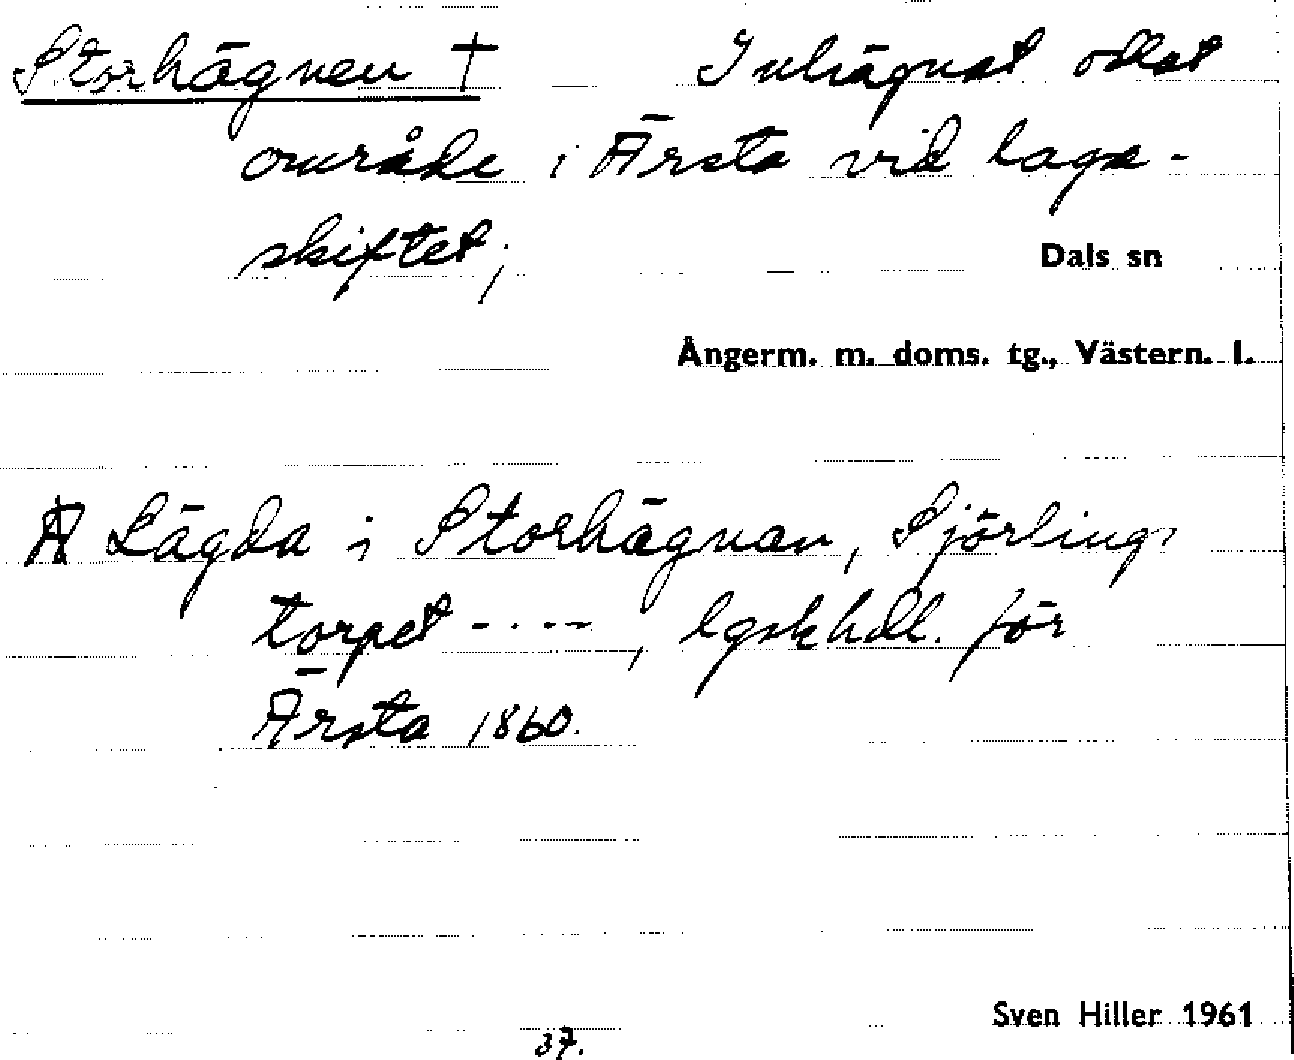 Storhägnen † Inhägnat odlat
område i Ärsta vid laga-
skiftet;
Dals sn
Ångerm. m. doms. tg., Västern. l.
Lägda i Storhägnan, Sjörlings
torpet -.--, lgskhdl. för
Ärsta 1860.
Sven Hiller 1961
37.